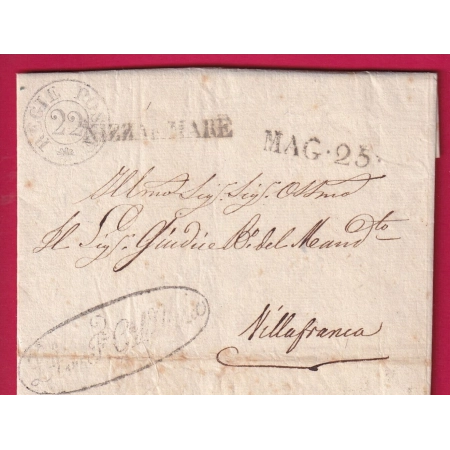 REGIE POSTE
22
NIZZA MARE
MAG. 25.
Illmo Sig.r Sig.r Ossmo
Il Sig.r Giudice R.o del Mand.to
Villafranca